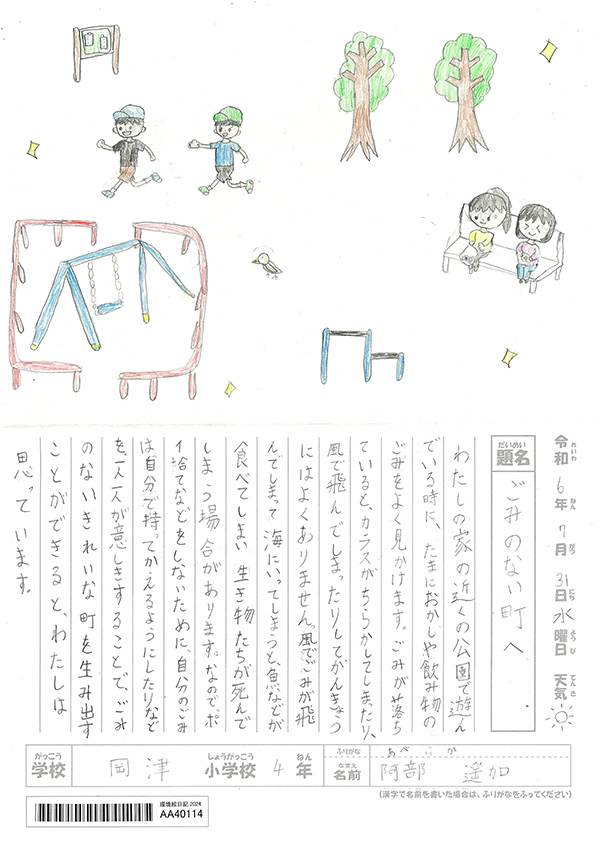 令和6年7月31日水曜日 天気
れいわ ねん がつ にち ようび てんき
だいめい
題名
ごみのない町へ
わたしの家の近くの公園で遊ん
でいる時に、たまにおかしや飲み物の
ごみをよく見かけます。ごみが落ち
ていると、カラスがちらかしてしまったり、
風で飛んでしまったりしてかんきょう
にはよくありません。風でごみが飛
んでしまって海にいってしまうと、魚などが
食べてしまい生き物たちが死んで
しまう場合があります。なので、ポ
イ捨てなどをしないために、自分のごみ
は自分で持ってかえるようにしたりなど
を、一人一人が意しきすることで、ごみ
のないきれいな町を生み出す
ことができると、わたしは
思っています。
がっこう しょうがっこう ねん
学校 岡津 小学校 4年
ふりがな あべ か
なまえ
名前 阿部 遥加
(漢字で名前を書いた場合は、ふりがなをふってください)
環境絵日記 2024
AA40114